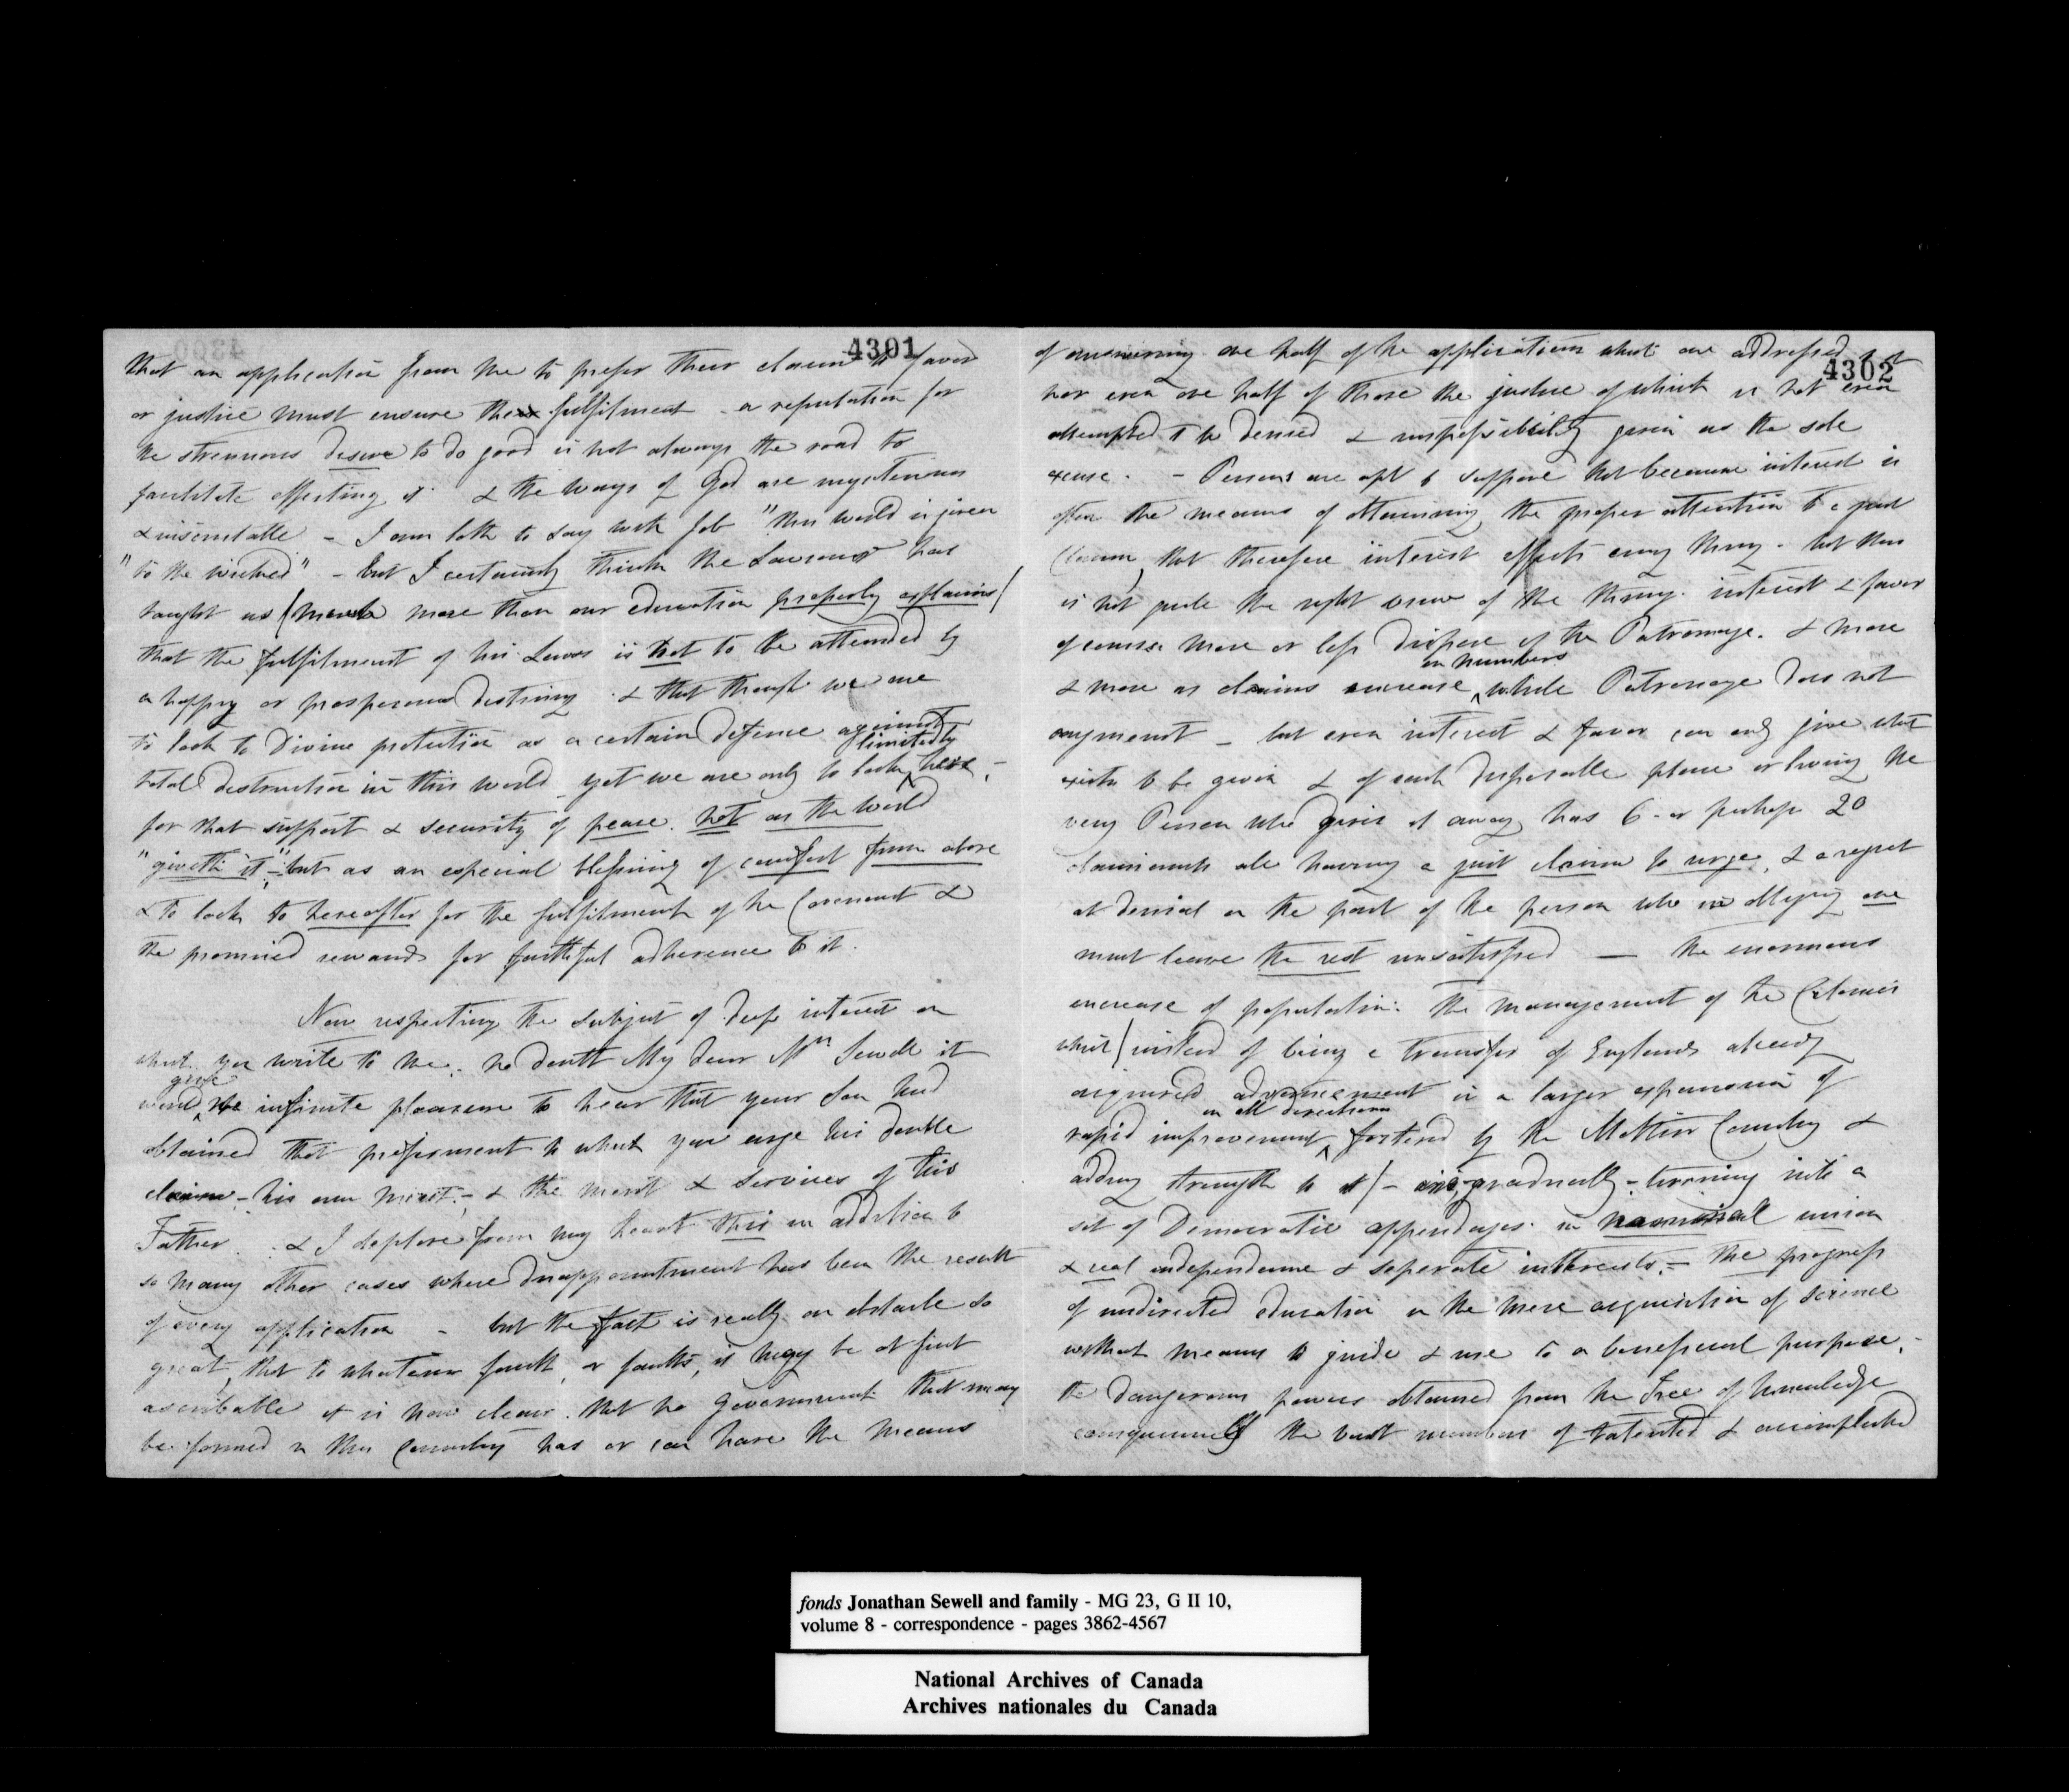 4301
that an application from me to prefer their claim to favor
or justice must ensure their fulfilment a reputation for
the strenuous desire to do good is not always the road to
facilitate effecting it. & the ways of God are mysterious
& inscrutable - I am loth to say with Job "this world is given
"to the wicked" - but I certainly think the Saviour has
taught us (much more than our education properly explains)
that the fulfilment of his Laws is not to be attended by
a happy or prosperous destiny & that though we are
to look to Divine protection as a certain defence against
total destruction in this world yet we are only to look limitedly here,
for that support & security of peace. not as the world
"giveth it" - but as an especial blessing of comfort from above
& to look to hereafter for the fulfilment of the Covenant &
the promised rewards for faithful adherence to it.
Now respecting the subject of deep interest on
which you write to me. no doubt My dear Mrs Sewell it
would give me infinite pleasure to hear that your Son had
obtained that preferment to which you urge his double
claim - his own merit - & the merit & services of his
Father. & I deplore from my heart this in addition to
so many other cases where disappointment has been the result
of every application - but the fact is really an obstacle so
great, that to whatever fault, or faults, it may be at first
ascribable it is now clear that no Government that may
be formed in this Country has or can have the means
4302
of answering one half of the applications which are addressed to it
nor even one half of those the justice of which is not even
attempted to be denied & impossibility given as the sole
excuse. - Persons are apt to suppose that because interest is
often the means of obtaining the proper attention to a just
claim, that therefore interest effects every thing. but this
is not quite the right view of the thing. interest & favor
of course more or less dispose of the Patronage. & more
& more as claims increase in numbers while Patronage does not
augment - but even interest & favor can only give what
exists to be given & of each disposable place or living the
very Person who gives it away has 6 or perhaps 20
claimants all having a just claim to urge, & a regret
at denial on the part of the person who in obliging one
must leave the rest unsatisfied — the enormous
increase of population: the management of the Colonies
which (instead of being a transfer of England's already
acquired advancement in a larger expansion of
rapid improvement in all directions fostered by the Mother Country &
adding strength to it) - is gradually - turning into a
set of Democratic appendages in nominal union
& real independence & seperate interests. - the progress
of undirected education or the mere acquisition of science
without means to guide & use to a beneficial purpose,
the dangerous powers obtained from the Tree of Knowledge
consequence of the vast numbers of talented & accomplished
fonds Jonathan Sewell and family - MG 23, G II 10,
volume 8 - correspondence - pages 3862-4567
National Archives of Canada
Archives nationales du Canada